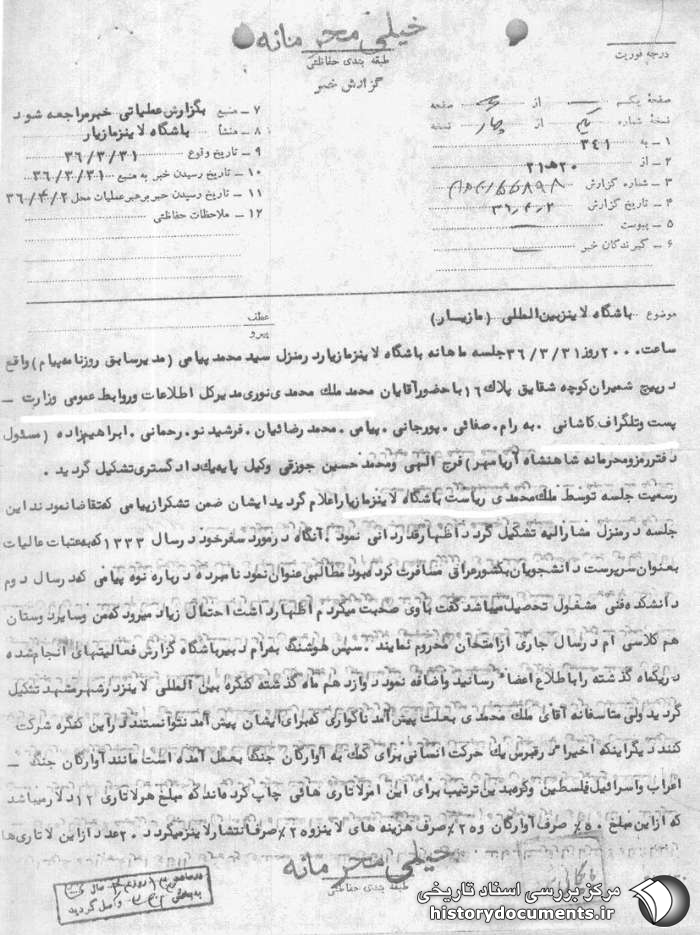 خیلی محرمانه
طبقه بندی حفاظتی
گزارش خبر
درجه فوریت
صفحهٔ یکم از صفحه
نسخهٔ شماره یکم از چهار نسخه
۱ – به ۳۴۱
۲ – از ۲۰ هـ ۲۱
۳ – شماره گزارش
۴ – تاریخ گزارش ۳۶٫۴٫۲
۵ – پیوست —
۶ – گیرندگان خبر —
۷ – منبع بگزارش عملیاتی خبر مراجعه شود
۸ – منشأ باشگاه لاینز مازیار
۹ – تاریخ وقوع ۳۶/۳/۳۱
۱۰ – تاریخ رسیدن خبر به منبع ۳۶/۳/۳۱
۱۱ – تاریخ رسیدن خبر برهبر عملیات محل ۳۶/۴/۲
۱۲ – ملاحظات حفاظتی
موضوع باشگاه لاینز بین المللی (مازیسار)
عطف
پیرو
ساعت ۲۰۰۰ روز ۳۶/۳/۳۱ جلسه ماهانه باشگاه لاینز مازیار در منزل سید محمد پیامی (مدیر سابق روزنامه پیام) واقع
در پیچ شمیران کوچه شقایق پلاک ۱۶ با حضور آقایان محمد ملک محمدی نوری مدیر کل اطلاعات و روابط عمومی وزارت –
پست و تلگراف کاشانی . به رام . صفائی . پورجانی . پیامی . محمد رضائیان . فرشید نو . رحمانی . ابراهیم زاده (مسئول
دفتر رمز و محرمانه شاهنشاه آریامهر) فرج الهی و محمد حسین جوزقی وکیل پایه یک دادگستری تشکیل گردید .
رسمیت جلسه توسط ملک محمدی ریاست باشگاه لاینز مازیار اعلام گردید ایشان ضمن تشکر از پیامی که تقاضا نمودند این
جلسه در منزل مشارالیه تشکیل گردد اظهار قدردانی نمود . آنگاه در مورد سفر خود در سال ۱۳۳۳ که به عتبات عالیات
بعنوان سرپرست دانشجویان بکشور عراق مسافرت کرده بود مطالبی عنوان نمود نامبرده درباره نوه پیامی که در سال دوم
دانشکده فنی مشغول تحصیل میباشد گفت باوی صحبت میکردم اظهار داشت احتمال زیاد میرود که من و سایر دوستان
هم کلاسی ام در سال جاری از امتحان محروم نمایند . سپس هوشنگ بهرام دبیر باشگاه گزارش فعالیتهای انجام شده
در یکماه گذشته را باطلاع اعضاء رسانید و اضافه نمود دوازدهم ماه گذشته کنگره بین المللی لاینز در شهر مشهد تشکیل
گردید ولی متاسفانه آقای ملک محمدی بعلت پیش آمد ناگواری که برای ایشان پیش آمد نتوانستند در این کنگره شرکت
کنند دیگر اینکه اخیراً در قبرس یک حرکت انسانی برای کمک به آوارگان جنگ بعمل آمده است مانند آوارگان جنگ –
اعراب و اسرائیل فلسطین و غیره بدین ترتیب برای این امر لاتاری هائی چاپ کرده اند که مبلغ هر لاتاری ۱۲ دلار میباشد
که از این مبلغ ۵۰٪ صرف آوارگان و ۲۵٪ صرف هزینه های لاینز و ۲۵٪ صرف انتشار لاینز میگردد . ۲۰ عدد از این لاتاری ها
خیلی محرمانه
طبقه بندی حفاظتی
بایگانی
مرکز بررسی اسناد تاریخی
historydocuments.ir